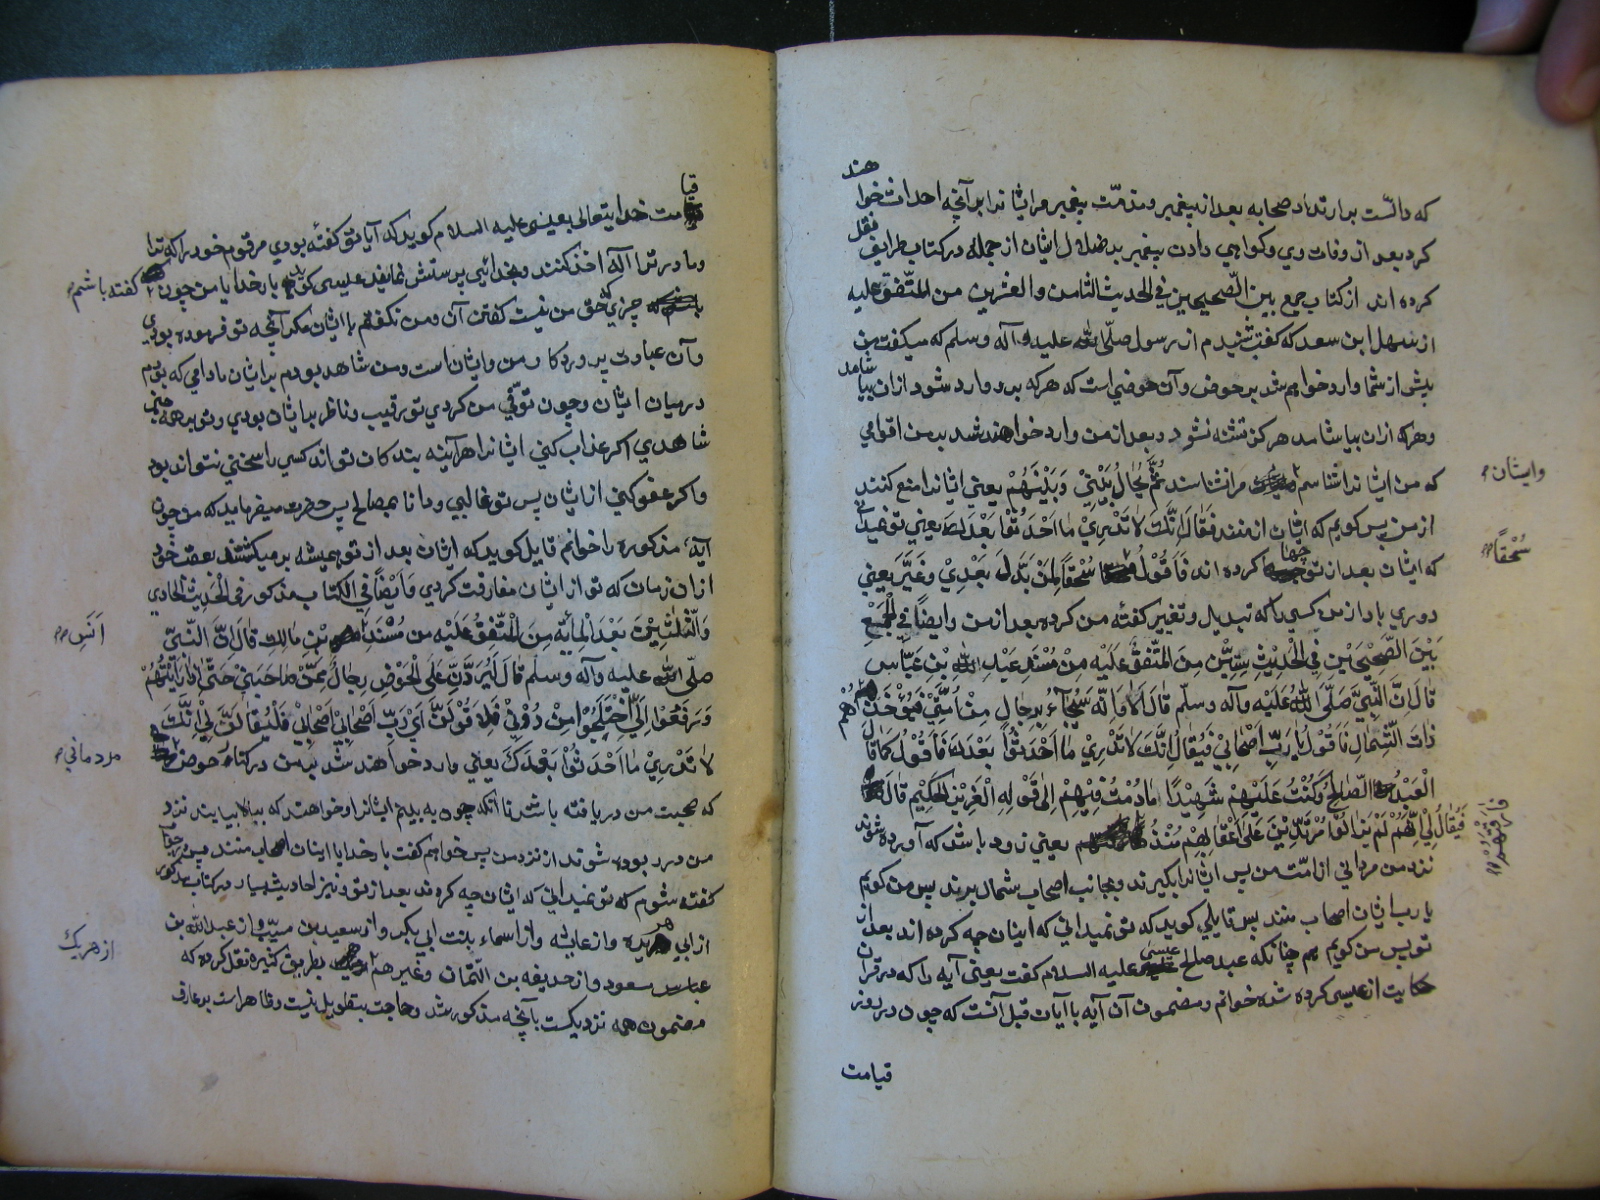 هند
که دالّست بر ارتداد صحابه بعد از پیغمبر و مذمّت پیغمبر مر ایشانرا بر آنچه احداث خوا
کرد بعد از وفات وی و کواهی دادن پیغمبر بر ضلال ایشان از جمله در کتاب طرایف نقل
کرده اند از کتاب جمع بین الصّحیحین فی الحدیث الثامن والعشرین من المتّفق علیه
از سهل ابن سعد که کفت شنیدم از رسول صلّی الله علیه وآله وسلم که میکفت من
پیش از شما وارد خواهم شد بر حوض وآن حوضی است که هر که برو وارد شود ازان بیاشامد
وهر که ازان بیاشامد هر کز تشنه نشود و بعد از من وارد خواهند شد بر من اقوامی
که من ایشانرا شناسم وایشان مرا شناسند ثُمَّ یُحٰالُ بَیْنِیْ وَبَیْنَهُمْ یعنی ایشانرا منع کنند
از من پس کویم که ایشان از منند فَیُقٰالُ اِنَّكَ لاٰ تَدْرِیْ مٰا اَحْدَثُوْا بَعْدَكَ یعنی تو نمیدانی
که ایشان بعد از تو چها کرده اند فَاَقُوْلُ سُحْقًا سُحْقًا لِمَنْ بَدَّلَ بَعْدِیْ وَغَیَّرَ یعنی
دوری باد از من کسی را که تبدیل وتغییر کفتهٔ من کرده بعد از من وایضاً فِی الْجَمْعِ
بَیْنَ الصَّحِیْحَیْنِ فِی الْحَدِیْثِ سِتِّیْنَ مِنَ الْمُتَّفَقِ عَلَیْهِ مِنْ مُسْنَدِ عَبْدِ اللهِ بْنِ عَبّٰاسٍ
قٰالَ اِنَّ النَّبِیَّ صَلَّی اللهُ عَلَیْهِ وآله وسلّم قٰالَ اَلاٰ وَاِنَّهُ سَیُجٰآءُ بِرِجٰالٍ مِنْ اُمَّتِیْ فَیُؤْخَذُ بِهُمْ
ذٰاتَ الشِّمٰالِ فَاَقُوْلُ یٰا رَبِّ اَصْحٰابِیْ فَیُقٰالُ اِنَّكَ لاٰ تَدْرِیْ مٰا اَحْدَثُوْا بَعْدَكَ فَاَقُوْلُ كَمٰا قٰالَ
الْعَبْدُ الصّٰالِحُ وَكُنْتُ عَلَیْهِمْ شَهِیْدًا مٰا دُمْتُ فِیْهِمْ اِلٰی قَوْلِهِ الْعَزِیْزُ الْحَكِیْمُ قٰالَ
فَیُقٰالُ لِیْ اِنَّهُمْ لَمْ یَزٰالُوْا مُرْتَدِّیْنَ عَلٰی اَعْقٰابِهِمْ مُنْذُ فٰارَقْتَهُمْ یعنی زود باشد که آورده شوند
نزد من مردانی از امّت من پس ایشانرا بکیرند وبجانب اصحاب شمال برند پس من کویم
یا رب ایشان اصحاب منند پس قایلی کوید که تو نمیدانی که اینان چه کرده اند بعد از
تو پس من کویم هم چنانکه عبد صالح عیسی علیه السلام کفت یعنی آیه را که در قران
حکایت از عیسی کرده شده خوانم ومضمون آن آیه با آیات قبل آنست که چون در روز
قیامت
وایشان
سُحْقًا
فٰارَقْتَهُمْ
قیامت خدایتعالی بعیسی علیه السلام کوید که آیا تو کفته بودی مر قوم خود را که ترا
ومادر ترا اله اخذ کنند وبخدائی پرستش نمایند عیسی کوید بار خدایا من چون کفته باشم
چیزی که حق من نیست کفتن آن ومن نکفتم با ایشان مکر آنچه تو فرموده بودی
وآن عبادت پروردکار من وایشان است ومن شاهد بودم بر ایشان مادامی که بودم
در میان ایشان وچون توفّی من کردی تو رقیب وناظر بایشان بودی وتو بر همه چیز
شاهدی اکر عذاب کنی ایشانرا هر آینه بندکان تواند کسی را سخنی نتواند بود
واکر عفو کنی از ایشان پس تو غالبی ودانا بمصالح پس حضرت میفرماید که من چون
آیهٔ مذکوره را خوانم قایل کوید که ایشان بعد از تو همیشه بر میکشتند بعقب خود
ازان زمان که تو از ایشان مفارقت کردی وَاَیْضًا فِی الکتاب مذکور فی الْحَدِیْثِ الْحٰادِی
وَالثَّلٰثِیْنَ بَعْدَ الْمِائَةِ مِنَ الْمُتَّفَقِ عَلَیْهِ مِنْ مُسْنَدِ اَنَسِ بْنِ مٰالِك قٰالَ اِنَّ النَّبِیَّ
صلّی الله علیه وآله وسلّم قٰالَ لَیَرِدَنَّ عَلَیَّ الْحَوْضَ رِجٰالٌ مِمَّنْ صٰاحَبَنِیْ حَتّٰی اِذٰا رَاَیْتُهُمْ
وَرُفِعُوْا اِلَیَّ اخْتُلِجُوْا مِنْ دُوْنِیْ فَلاَقُوْلَنَّ اَیْ رَبِّ اَصْحٰابِیْ اَصْحٰابِیْ فَلَیُقٰالَنَّ لِیْ اِنَّكَ
لاٰ تَدْرِیْ مٰا اَحْدَثُوْا بَعْدَكَ یعنی وارد خواهند شد بر من در کنار حوض مردمانی
که صحبت من دریافته باشند تا آنکه چون به بینم ایشانرا وخواهند که بیالا بیایند نزد
من در ربوده شوند از نزد من پس خواهم کفت بار خدایا اینان اصحاب منند پس جواب
کفته شوم که تو نمیدانی که ایشان چه کردند بعد از تو ونیز احادیث بسیار در کتاب مذکور
از ابی هریره واز عایشه واز اسماء بنت ابی بکر واز سعید بن مسیّب واز عبد الله بن
عباس مسعود واز حذیفه بن الیَمان وغیرهم از هر یك بطریق کثیره نقل کرده که
مضمون همه نزدیکست بآنچه مذکور شد وحاجت بتطویل نیست وظاهر است بر عارف
اَنَسِ
مردمانی
از هر یك